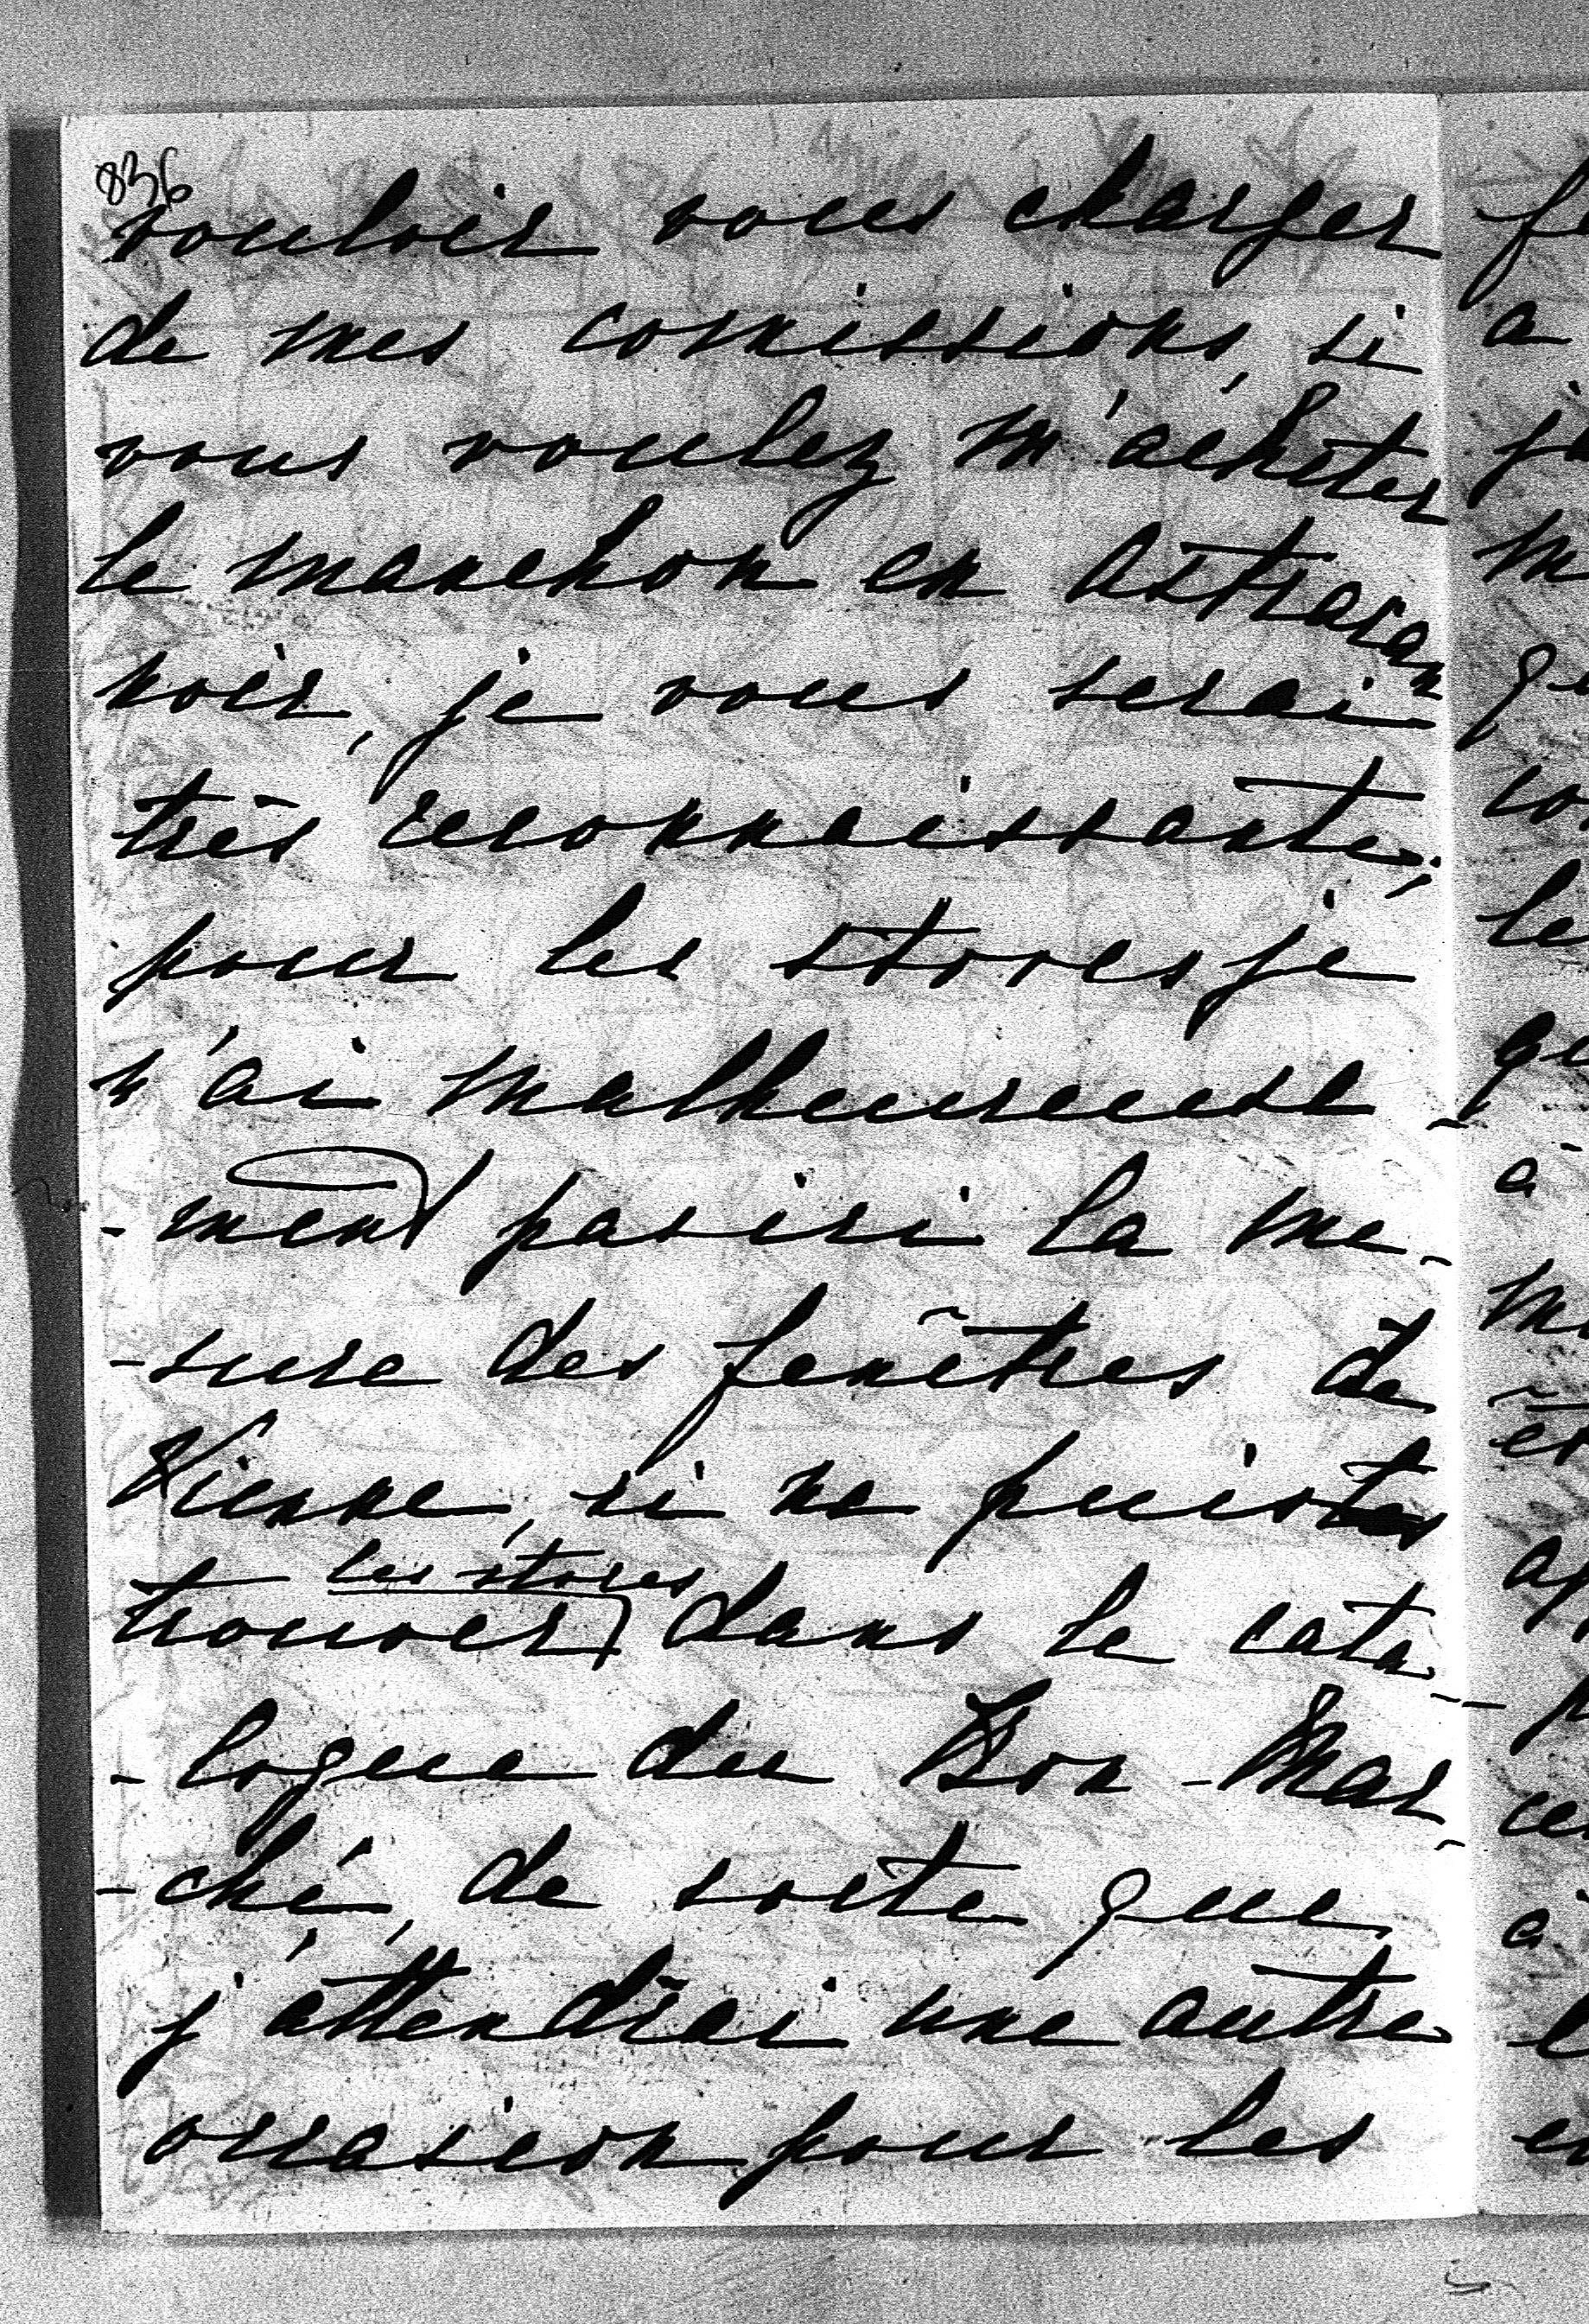 836
vouloir vous charger
de mes comissions, si
vous voulez m'acheter
le manchon en astracan
noir, je vous serai
très reconnaissante;
pour les stores je
n'ai malheureuse-
-ment pas ici la me-
-sure des fenêtres de
Vienne, ni ne puis
les stores
trouver dans le cata-
-logue du Bon-Mar-
-ché, de sorte que
j'attendrai une autre
occasion pour les